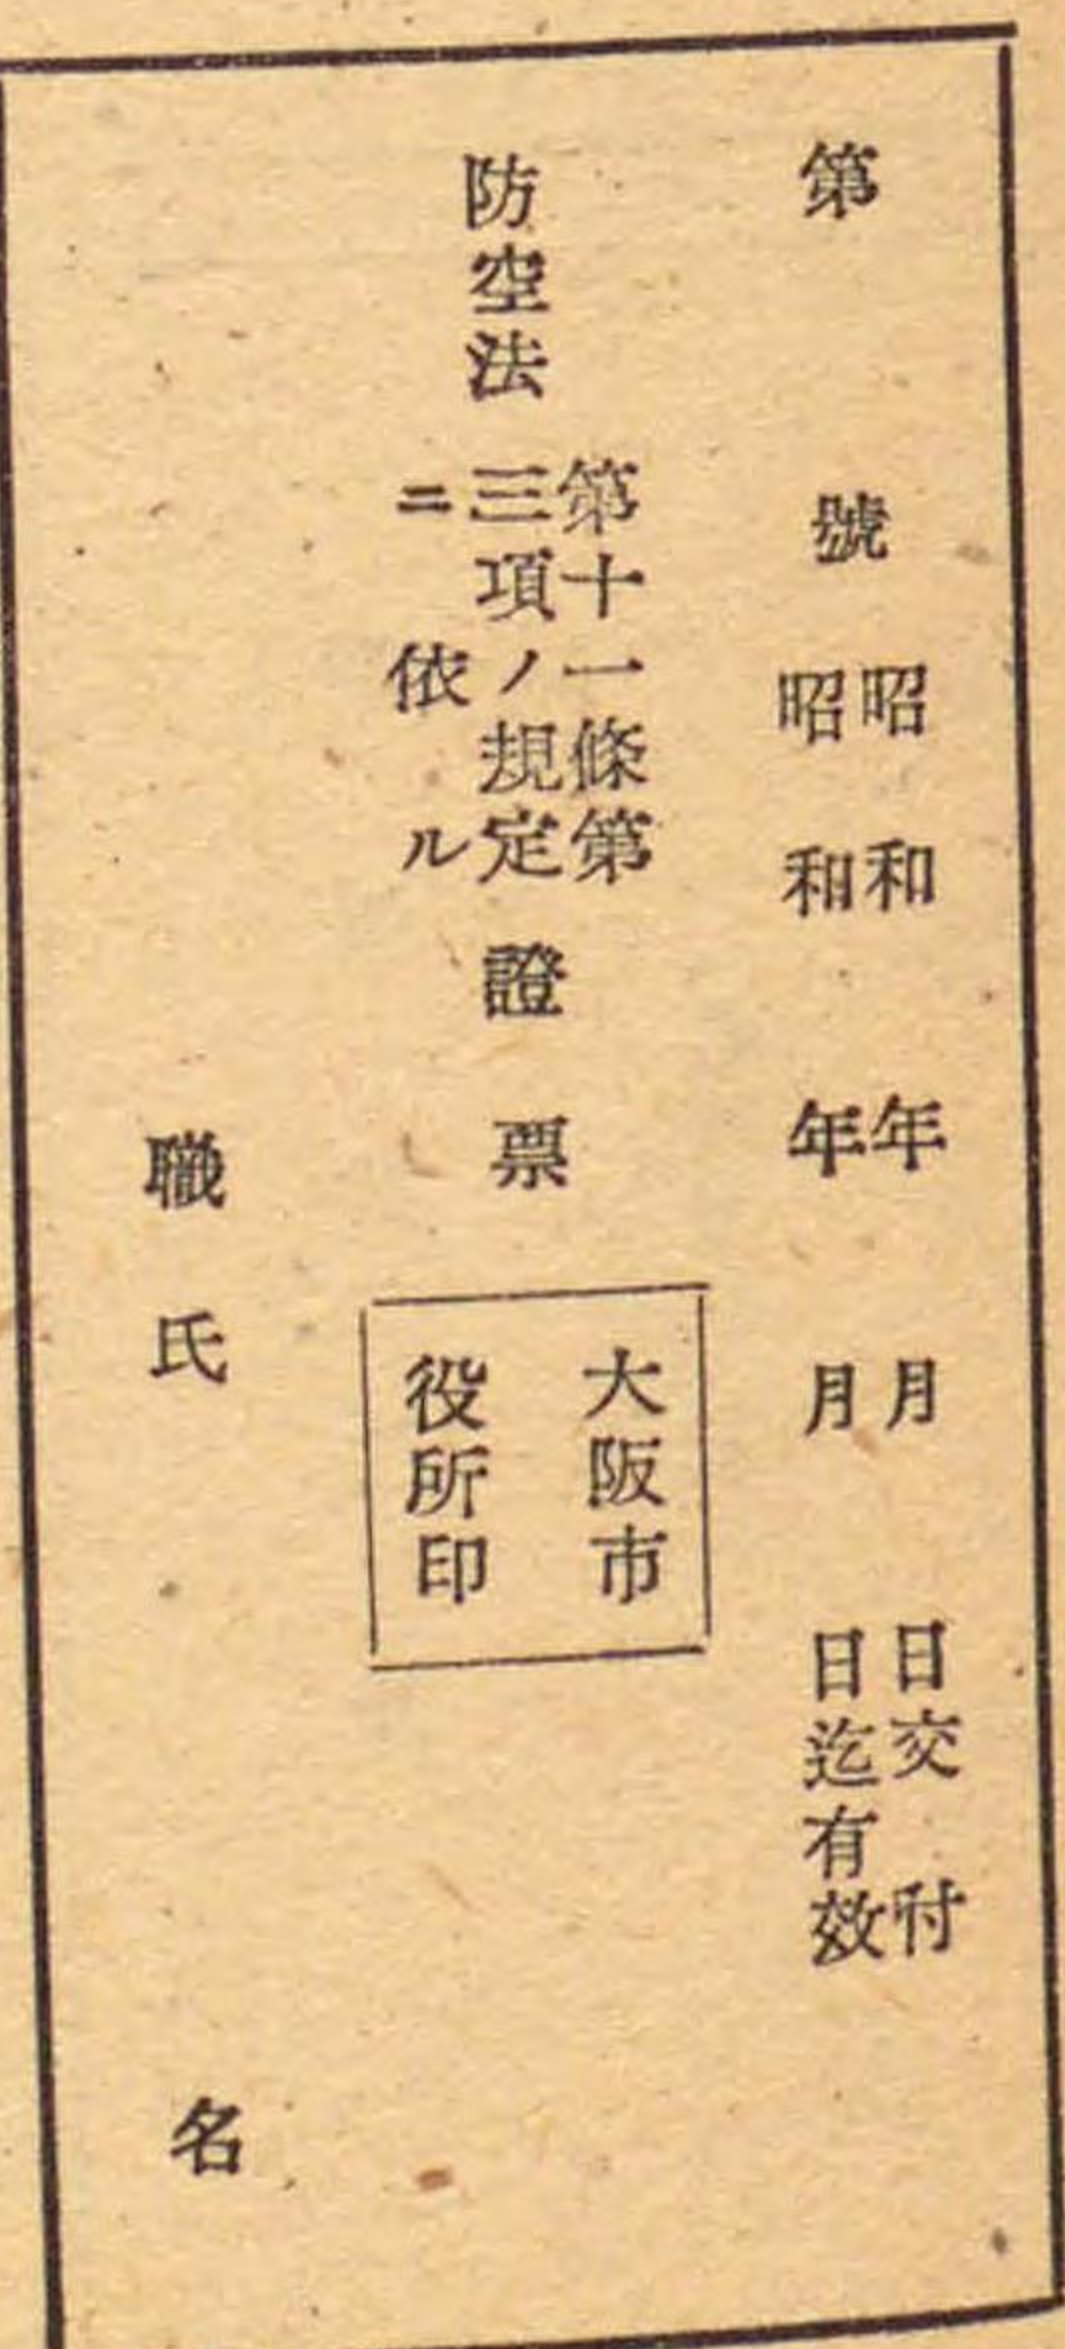 第 號
昭和 年 月 日交付
昭和 年 月 日迄有效
防空法
第十一條第
三項ノ規定
ニ依ル
證票
大阪市
役所印
職氏名